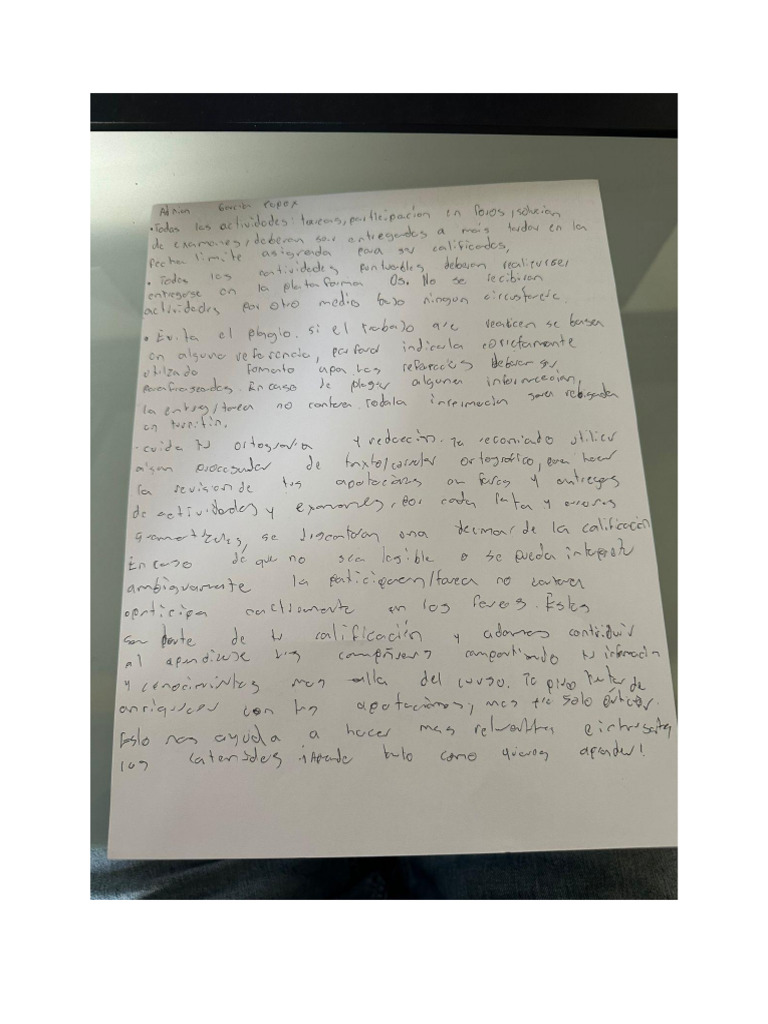 Adrian Garcia Lopez
• Todas las actividades: tareas, participación en foros, solucion
de examenes, deberan ser entregadas a más tardar en la
fecha limite asignada para su calificados,
• Todas las actividades puntuables deberan realizarse,
entregarse en la plataforma Os. No se recibiran
actividades por otro medio bajo ningun circustancia.
• Evita el plagio. si el trabajo que realicen se basa
en alguna referencia, porfavor indicala correctamente
utilzado formato apa. Los Deberan ser
Parafraseados. En caso de plagar alguna informacion,
la entreg/tarea no contara. Toda la
en turnitin.
• cuida tu ortografia y redacción. Te recomiado utilicer
algun procesador de texto/corrector ortográfico, para hacer
la revision de tus apotacions en foros y entregas
de actividades y examenes, Por cada falta y errores
se discontaran una decima de la calificación
En caso de que no sea legible o se pueda interpretr
ambiguamente la participacion/tarea no contara
participa activamente en los foros. Estos
son parte de tu calificación y ademas contribuir
al aprendizaje tus compñeros compartiendo tu informacion
y conocimintos mas alla del curso. Te pido tratar de
enriquecer con tus apotacions, mas no solo
Esto nos ayuda a hacer mas
los ¡Aprende todo como quieras aprender!